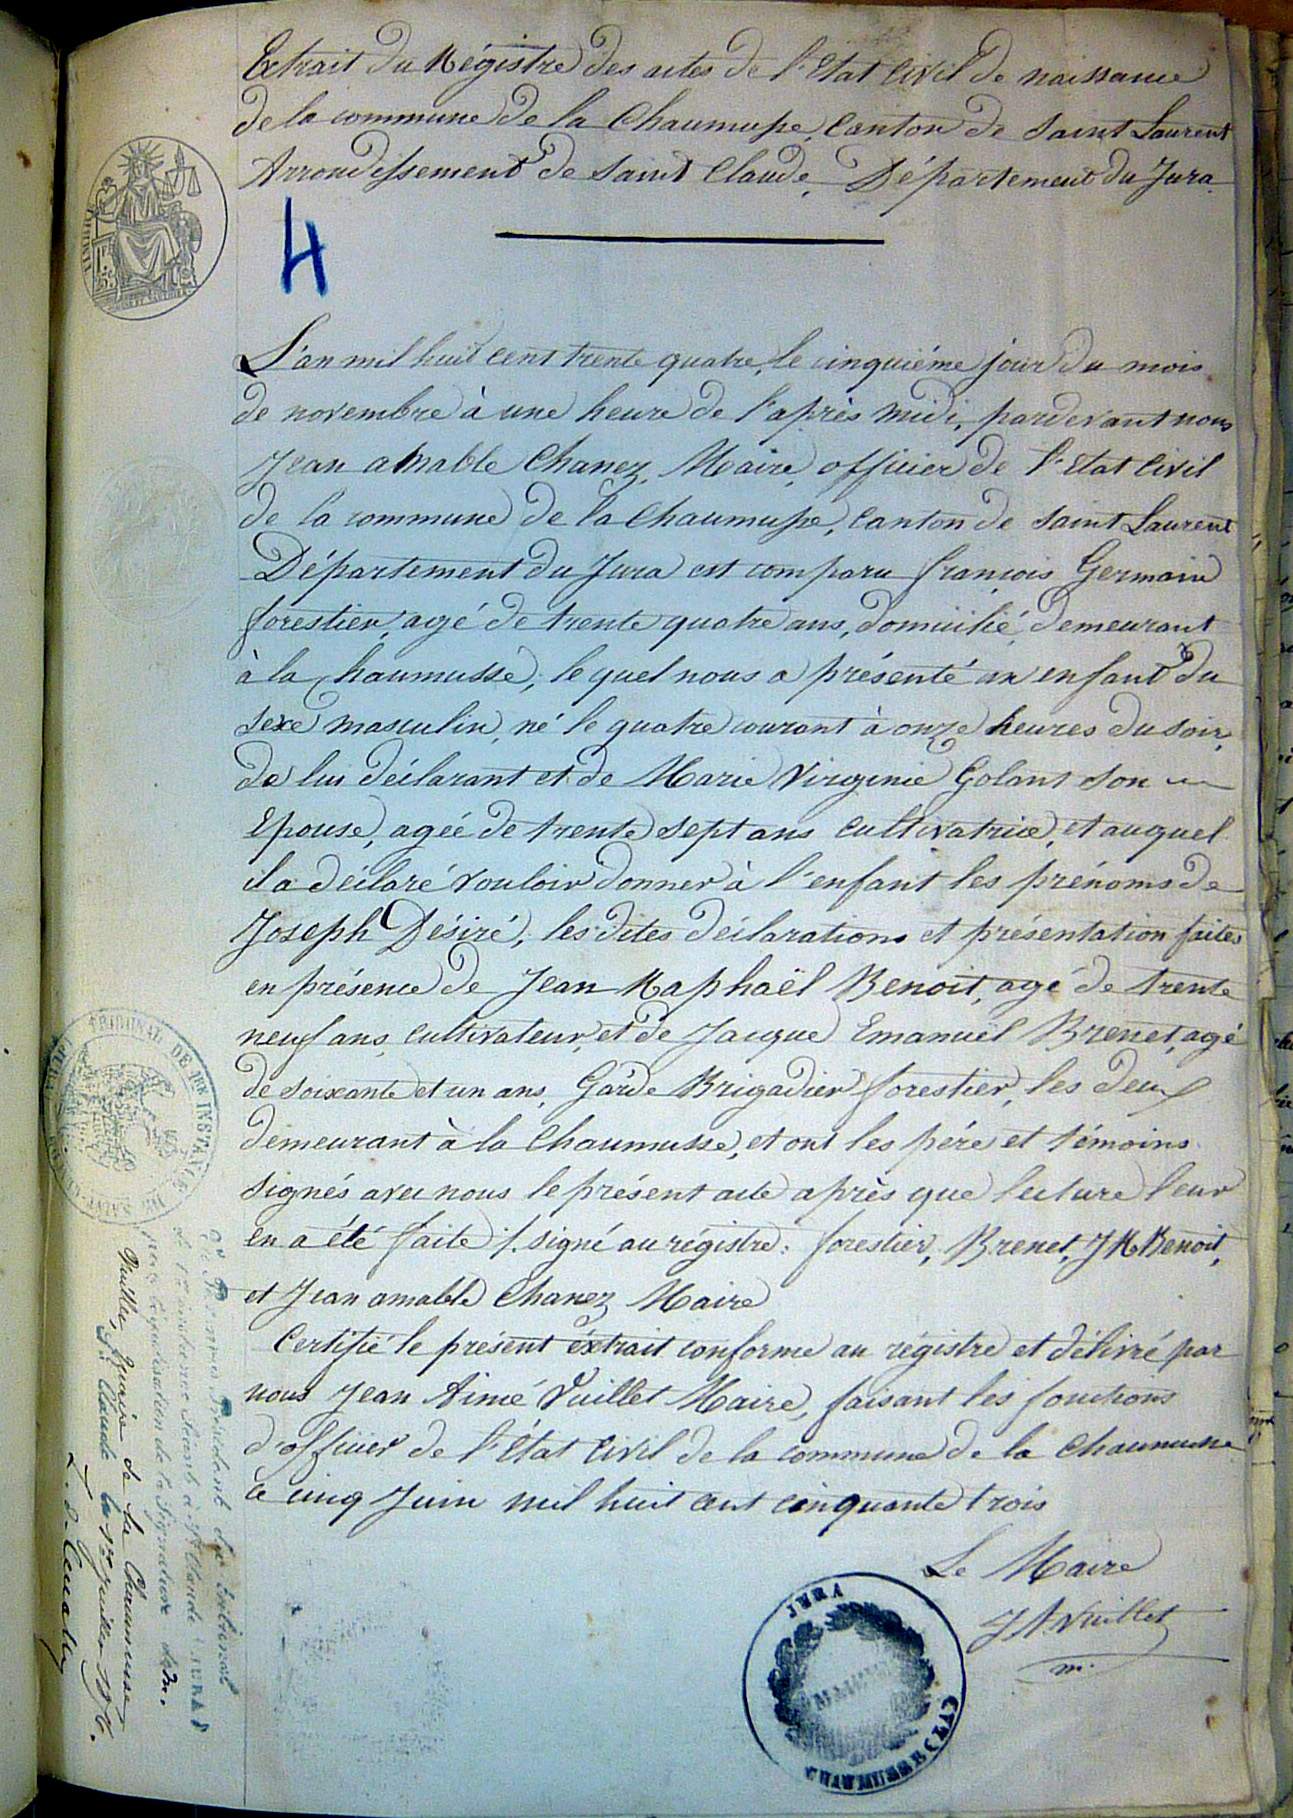 Extrait du Régistre des actes de l'Etat Civil de naissance
de la commune de la Chaumusse, Canton de Saint Laurent
Arrondissement de Saint Claude, Département du Jura.
4
L'an mil huit cent trente quatre, le cinquième jour du mois
de novembre à une heure de l'après midi, pardevant nous
Jean amable Chanez, Maire, officier de l'Etat Civil
de la commune de la Chaumusse, Canton de Saint Laurent
Département du Jura est comparu françois Germain
forestier, agé de trente quatre ans, domicilié demeurant
à la Chaumusse, le quel nous a présenté un enfant du
sexe masculin, né le quatre courant à onze heures du soir,
de lui déclarant et de Marie Virginie Golant son
Epouse, agée de trente sept ans cultivatrice, et auquel
il a déclaré vouloir donner à l'enfant les prénoms de
Joseph Désiré, les dites déclarations et présentation faites
en présence de Jean Raphaël Benoit, agé de trente
neuf ans, cultivateur, et de Jacque Emanuel Brenet, agé
de soixante et un ans, Garde Brigadier forestier, les deux
demeurant à la Chaumusse, et ont les père et témoins
signés avec nous le présent acte après que lecture leur
en a été faite /. signé au régistre: forestier, Brenet, J R Benoit,
et Jean amable Chanez Maire
Certifié le présent éxtrait conforme au régistre et délivré par
nous Jean Aimé Vuillet Maire, faisant les fonctions
d'officier de l'État Civil de la commune de la Chaumusse
ce cinq Juin mil huit cent cinquante trois
Le Maire
J A Vuillet
JURA
MAIRIE
TRIBUNAL DE 1RE INSTANCE
Président du Tribunal
de 1re instance séant à St Claude (JURA)
pour légalisation de la Signature de M.
Vuillet, maire de la Chaumusse
St Claude le